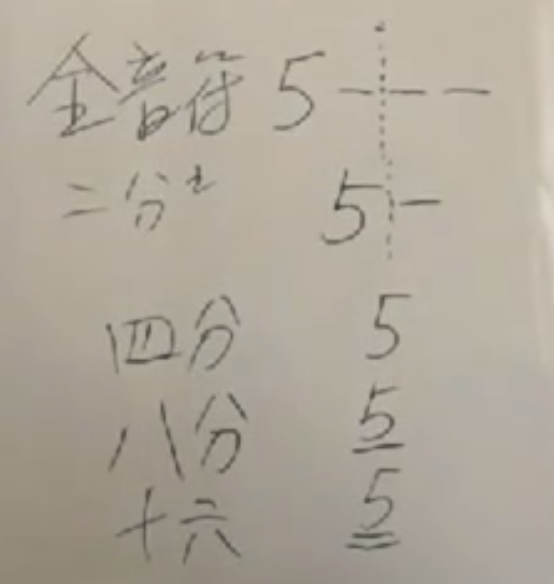 全音符 5 - - -
二分〃 5 -
四分 5
八分 5
十六 5